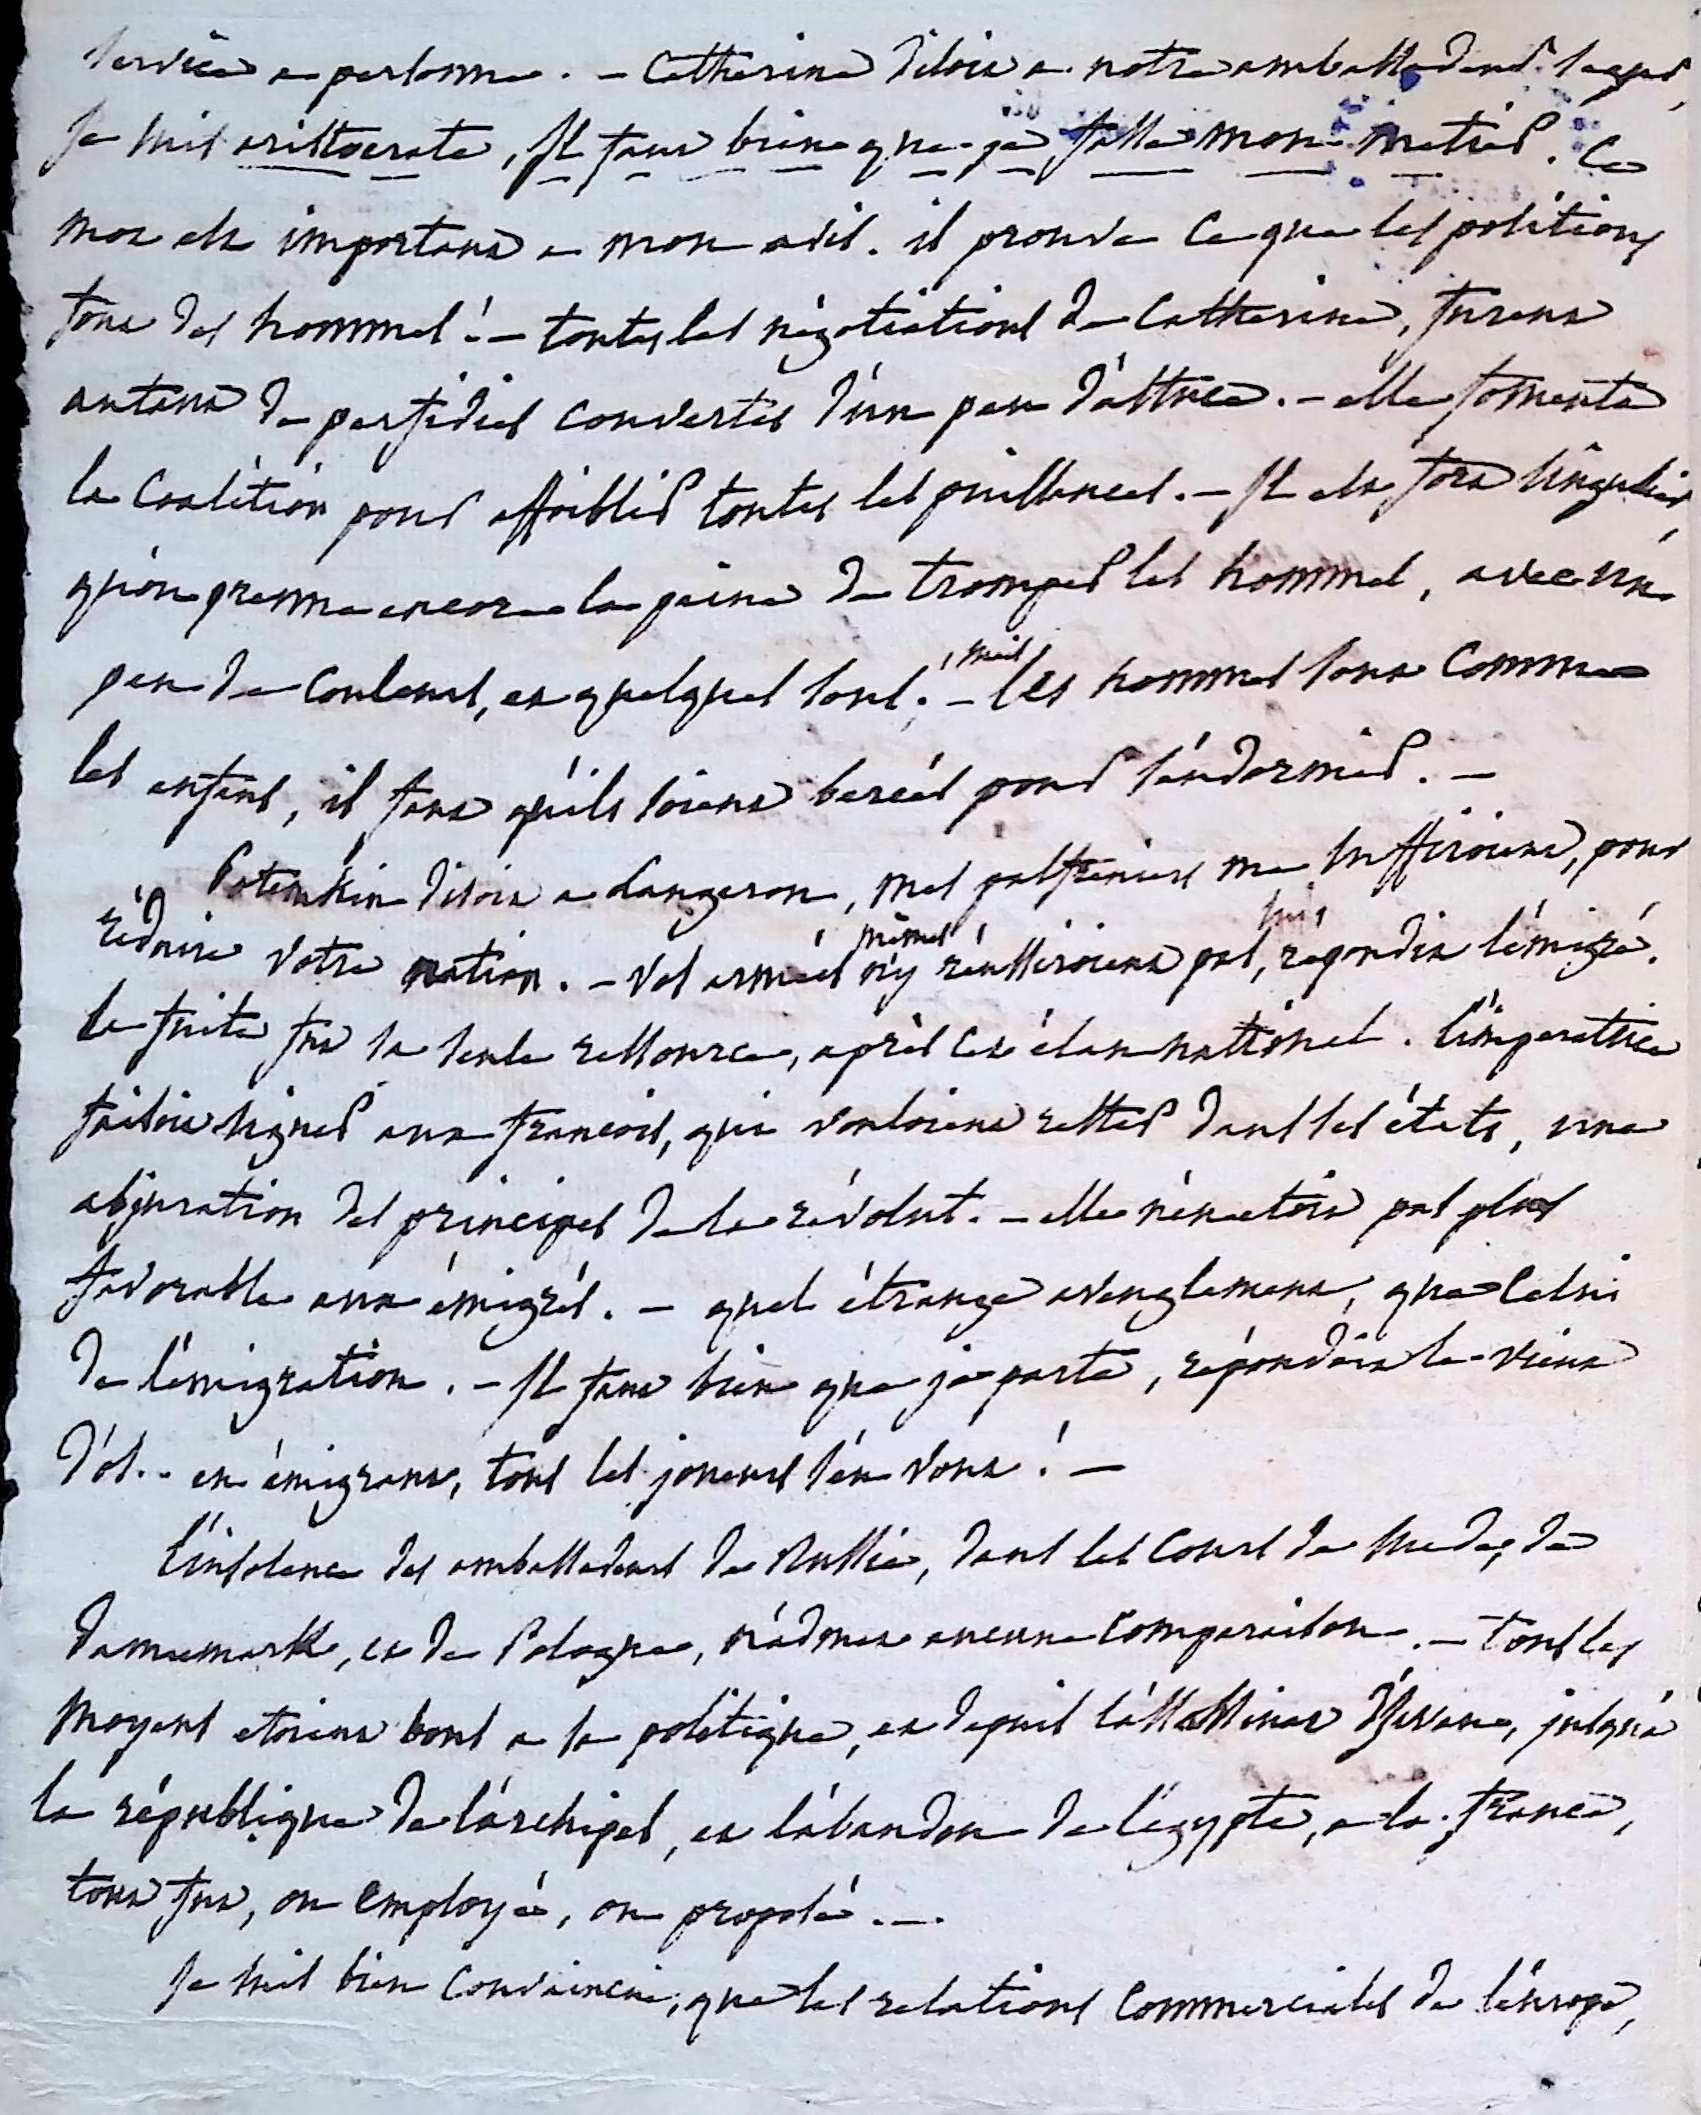 service a personne. - Catherine disoit a notre ambassadeur Segur,
Je suis aristocrate, Il faut bien que je fasse mon métier. Ce
mot est important a mon avis. il prouve ce que les positions
font des hommes! - toutes les négotiations de Catherine, furent
autant de perfidies couvertes d'un peu d'astuce. - elle fomenta
la Coalition pour affoiblir toutes les puissances. - Il est fort singulier,
qu'on prenne encore la peine de tromper les hommes, avec un
peu de couleurs, et quelques sons; - mais les hommes sont comme
les enfens, il faut qu'ils soient bercés pour s'endormir. -
Potemkin disoit a Langeron, mes palfreniers me suffiroient, pour
réduire votre nation. - Vos armées mêmes n'y réussiroient pas, répondit l'émigré.
la fuite fut sa seule ressource, après cet élan national. l'impératrice
faisoit signer aux françois, qui vouloient rester dans ses états, une
abjuration des principes de la révolut. - elle n'en etoit pas plus
favorable aux émigrés. - quel étrange aveuglement, que celui
de l'émigration. - Il faut bien que je parte, répondoit le vieux
d'Os.. en émigrant, tous les joueurs s'en vont! -
l'insolence des ambassadeurs de Russie, dans les Cours de Suede, de
Dannemark, et de Pologne, n'admet aucune comparaison. - Tous les
moyens etoient bons a sa politique, et depuis l'assassinat d'Iwane, jusqu'a
la république de l'archipel, et l'abandon de l'égypte, a la france,
tout fut, ou employé, ou proposé. -
Je suis bien convaincu, que les relations commerciales de l'europe,